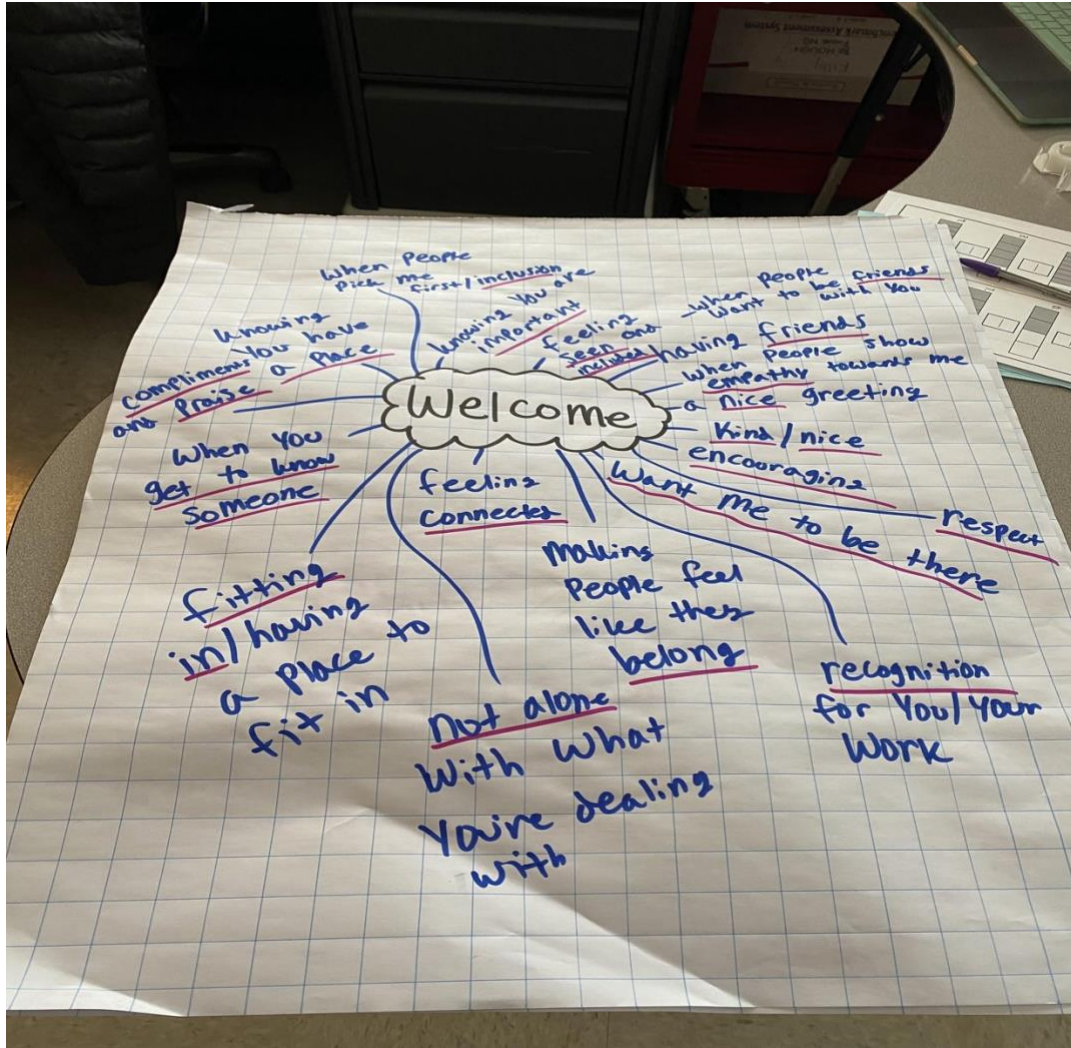 Benchmark Assessment System
When People
Pick me
first/inclusion
knowing You are
important
feeling
seen and
included
when people
want to be friends
with you
having friends
when people show
empathy towards me
a nice greeting
Kind/nice
encouraging
respect
Want me to be there
recognition
for You/Your
Work
making
People feel
like they
belong
feeling
connected
not alone
with what
You're dealing
with
fitting
in/having
a place to
fit in
When You
get to know
someone
compliments
and Praise
knowing
You have
a Place
Welcome